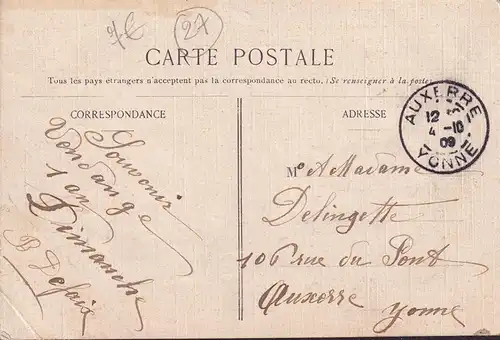 7€
27
CARTE POSTALE
Tous les pays étrangers n'acceptent pas la correspondance au recto. (Se renseigner à la poste)
CORRESPONDANCE
ADRESSE
Souvenir
Vendange
1 an
Dimanche
B Defaix
M A Madame
Delingette
106 rue du Pont
Auxerre Yonne
AUXERRE
12
4 -10
09
YONNE